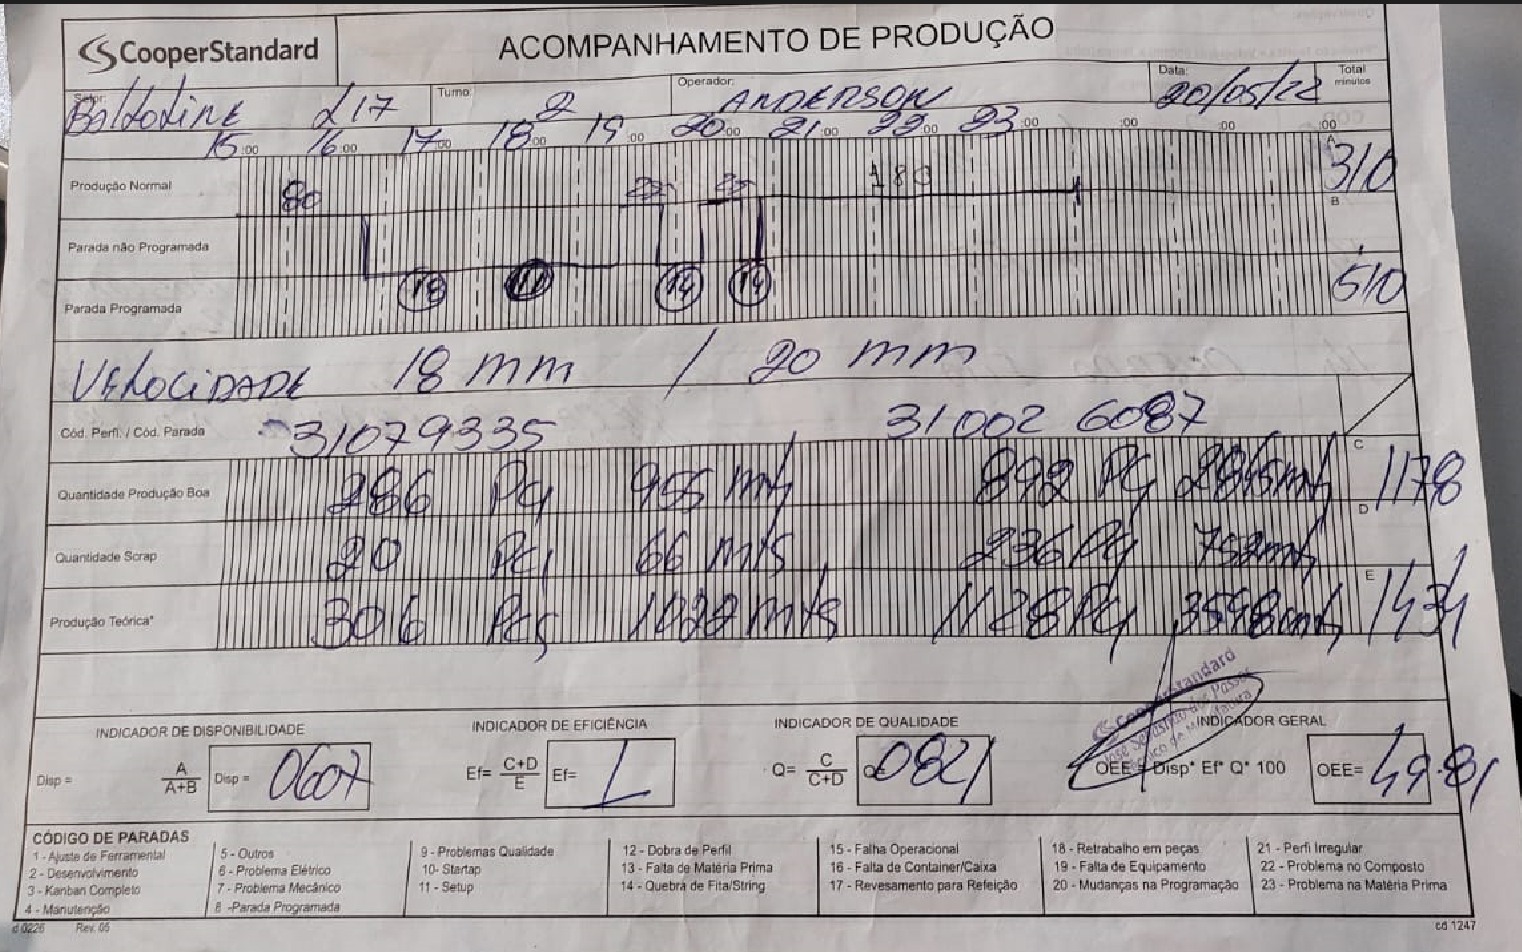 CooperStandard
ACOMPANHAMENTO DE PRODUÇÃO
Setor: L17 Turno: 2 Operador: ANDERSON Data: 20/05/22 Total minutos
15:00 16:00 17:00 18:00 19:00 20:00 21:00 22:00 23:00 :00 :00 :00
Produção Normal 80 25 25 180 A 310
Parada não Programada B
Parada Programada 18 14 14 510
VELOCIDADE 18 mm / 20 mm
Cód. Perfi. / Cód. Parada 31079335 31002 6087
Quantidade Produção Boa 286 PÇ 955 mts 892 PÇ C 1178
Quantidade Scrap 20 PÇ 66 mts 236 PÇ D
Produção Teórica* 306 Pçs 1020 mts 1128 PÇ E 1434
INDICADOR DE DISPONIBILIDADE INDICADOR DE EFICIÊNCIA INDICADOR DE QUALIDADE INDICADOR GERAL
Disp = A / A+B Disp = 0607 Ef= C+D / E Ef= 1 Q= C / C+D Q 0821 OEE = Disp* Ef* Q* 100 OEE= 49.81
CÓDIGO DE PARADAS
1 - Ajuste de Ferramental
2 - Desenvolvimento
3 - Kanban Completo
4 - Manutenção
5 - Outros
6 - Problema Elétrico
7 - Problema Mecânico
8 -Parada Programada
9 - Problemas Qualidade
10 - Startap
11 - Setup
12 - Dobra de Perfil
13 - Falta de Matéria Prima
14 - Quebra de Fita/String
15 - Falha Operacional
16 - Falta de Container/Caixa
17 - Revesamento para Refeição
18 - Retrabalho em peças
19 - Falta de Equipamento
20 - Mudanças na Programação
21 - Perfi Irregular
22 - Problema no Composto
23 - Problema na Matéria Prima
d 0226 Rev. 05 cd 1247